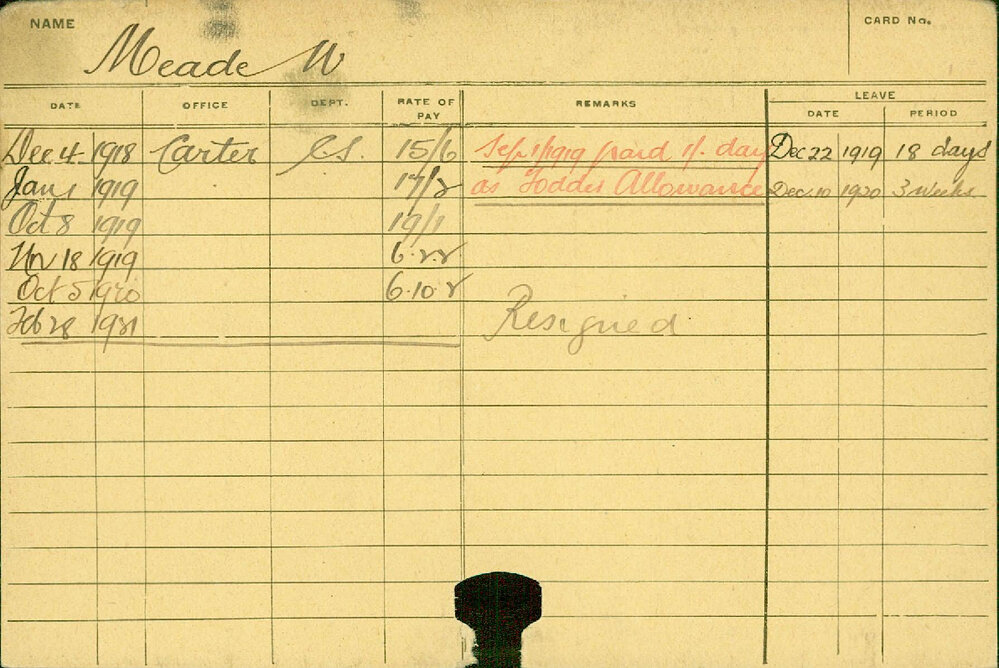 NAME Meade W CARD No.
DATE OFFICE DEPT. RATE OF PAY REMARKS LEAVE DATE PERIOD
Dec 4 1918 Carter C.S. 15/6 Sep 1/1919 paid 1/- day Dec 22 1919 18 days
Jan 1 1919 17/2 as Fodder Allowance Dec. 10 1920 3 weeks
Oct 8 1919 19/1
Nov 18 1919 6.2.2
Oct 5 1920 6.10.2
Feb 28 1921 Resigned